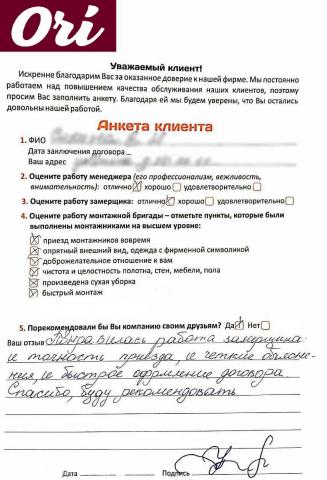 Ori
Уважаемый клиент!
Искренне благодарим Вас за оказанное доверие к нашей фирме. Мы постоянно
работаем над повышением качества обслуживания наших клиентов, поэтому
просим Вас заполнить анкету. Благодаря ей мы будем уверены, что Вы остались
довольны нашей работой.
Анкета клиента
1. ФИО
Дата заключения договора
Ваш адрес
2. Оцените работу менеджера (его профессионализм, вежливость,
внимательность): отлично хорошо удовлетворительно
3. Оцените работу замерщика: отлично хорошо удовлетворительно
4. Оцените работу монтажной бригады – отметьте пункты, которые были
выполнены монтажниками на высшем уровне:
приезд монтажников вовремя
опрятный внешний вид, одежда с фирменной символикой
доброжелательное отношение к вам
чистота и целостность полотна, стен, мебели, пола
произведена сухая уборка
быстрый монтаж
5. Порекомендовали бы Вы компанию своим друзьям? Да Нет
Ваш отзыв Понравилась работа замерщика:
и точность приезда, и четкие
и быстрое оформление договора.
Спасибо, буду рекомендовать
Дата Подпись